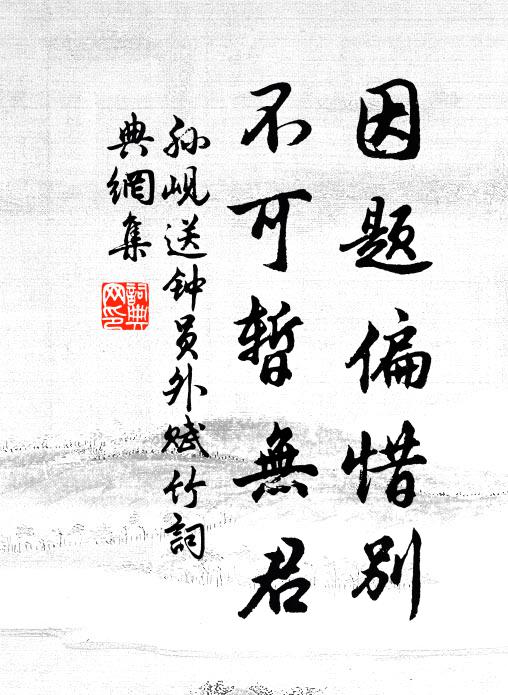 因题偏惜别
不可暫無君
孙岘送钟员外赋竹詞
典網集
詞典
网印